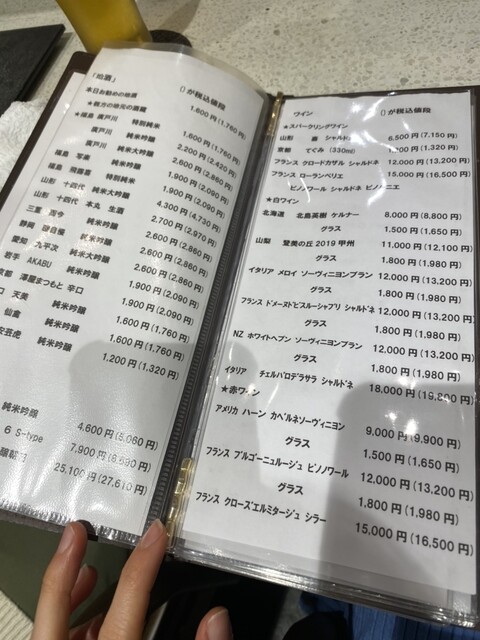 「地酒」 ()が税込価段
本日お勧めの地酒
★枚方の地元の酒蔵 1,600円(1,760円)
★福島 廣戸川 特別純米
廣戸川 純米吟醸 1,600円(1,760円)
廣戸川 純米大吟醸 2,200円(2,420円)
福島 写楽 純米吟醸 2,600円(2,860円)
福島 飛露喜 特別純米 1,900円(2,090円)
山形 十四代 純米大吟醸 1,900円(2,090円)
山形 十四代 本丸 生酒 4,300円(4,730円)
三重 而今 純米吟醸 2,700円(2,970円)
静岡 磯自慢 純米吟醸 2,600円(2,860円)
愛知 九平次 純米大吟醸 2,600円(2,860円)
岩手 AKABU 純米吟醸 2,600円(2,860円)
京都 澤屋まつもと 辛口 1,900円(2,090円)
天美 純米吟醸 1,900円(2,090円)
仙禽 純米吟醸 1,600円(1,760円)
安芸虎 純米吟醸 1,600円(1,760円)
1,200円(1,320円)
純米吟醸
6 S-type 4,600円(5,060円)
7,900円(8,690円)
25,100円(27,610円)
ワイン ()が税込価段
★スパークリングワイン
山形 嘉 シャルドネ 6,500円(7,150円)
京都 てぐみ (330ml) 1,200円(1,320円)
フランス クロードカザル シャルドネ 12,000円(13,200円)
フランス ローランペリエ 15,000円(16,500円)
ピノノワール シャルドネ ピノムニエ
★白ワイン
北海道 北島英樹 ケルナー 8,000円(8,800円)
グラス 1,500円(1,650円)
山梨 登美の丘 2019 甲州 11,000円(12,100円)
グラス 1,800円(1,980円)
イタリア メロイ ソーヴィニヨンブラン 12,000円(13,200円)
グラス 1,800円(1,980円)
フランス ドメーヌトビスルーシャブリ シャルドネ 12,000円(13,200円)
グラス 1,800円(1,980円)
NZ ホワイトヘブン ソーヴィニヨンブラン 12,000円(13,200円)
グラス 1,800円(1,980円)
イタリア チェルバロデラサラ シャルドネ 18,000円(19,800円)
★赤ワイン
アメリカ ハーン カベルネソーヴィニヨン 9,000円(9,900円)
グラス 1,500円(1,650円)
フランス ブルゴーニュルージュ ピノノワール 12,000円(13,200円)
グラス 1,800円(1,980円)
フランス クローズエルミタージュ シラー 15,000円(16,500円)